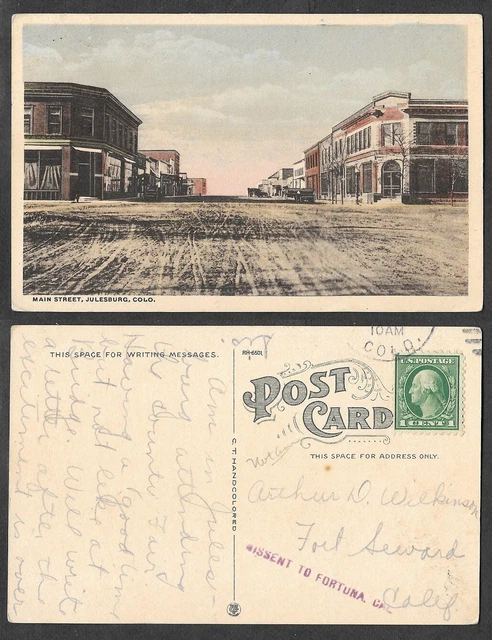 MAIN STREET, JULESBURG, COLO.
THIS SPACE FOR WRITING MESSAGES.
RH-6501
10AM
COLO.
U.S. POSTAGE
1 CENT 1
POST CARD
THIS SPACE FOR ADDRESS ONLY.
C.T. HANDCOLORED
Arthur D. Wilkinson
Fort Seward
Calif
MISSENT TO FORTUNA, CAL
Am in Jules-
burg attending
the County Fair
Having a good time
but not
Will write
a letter after the
excitement is over